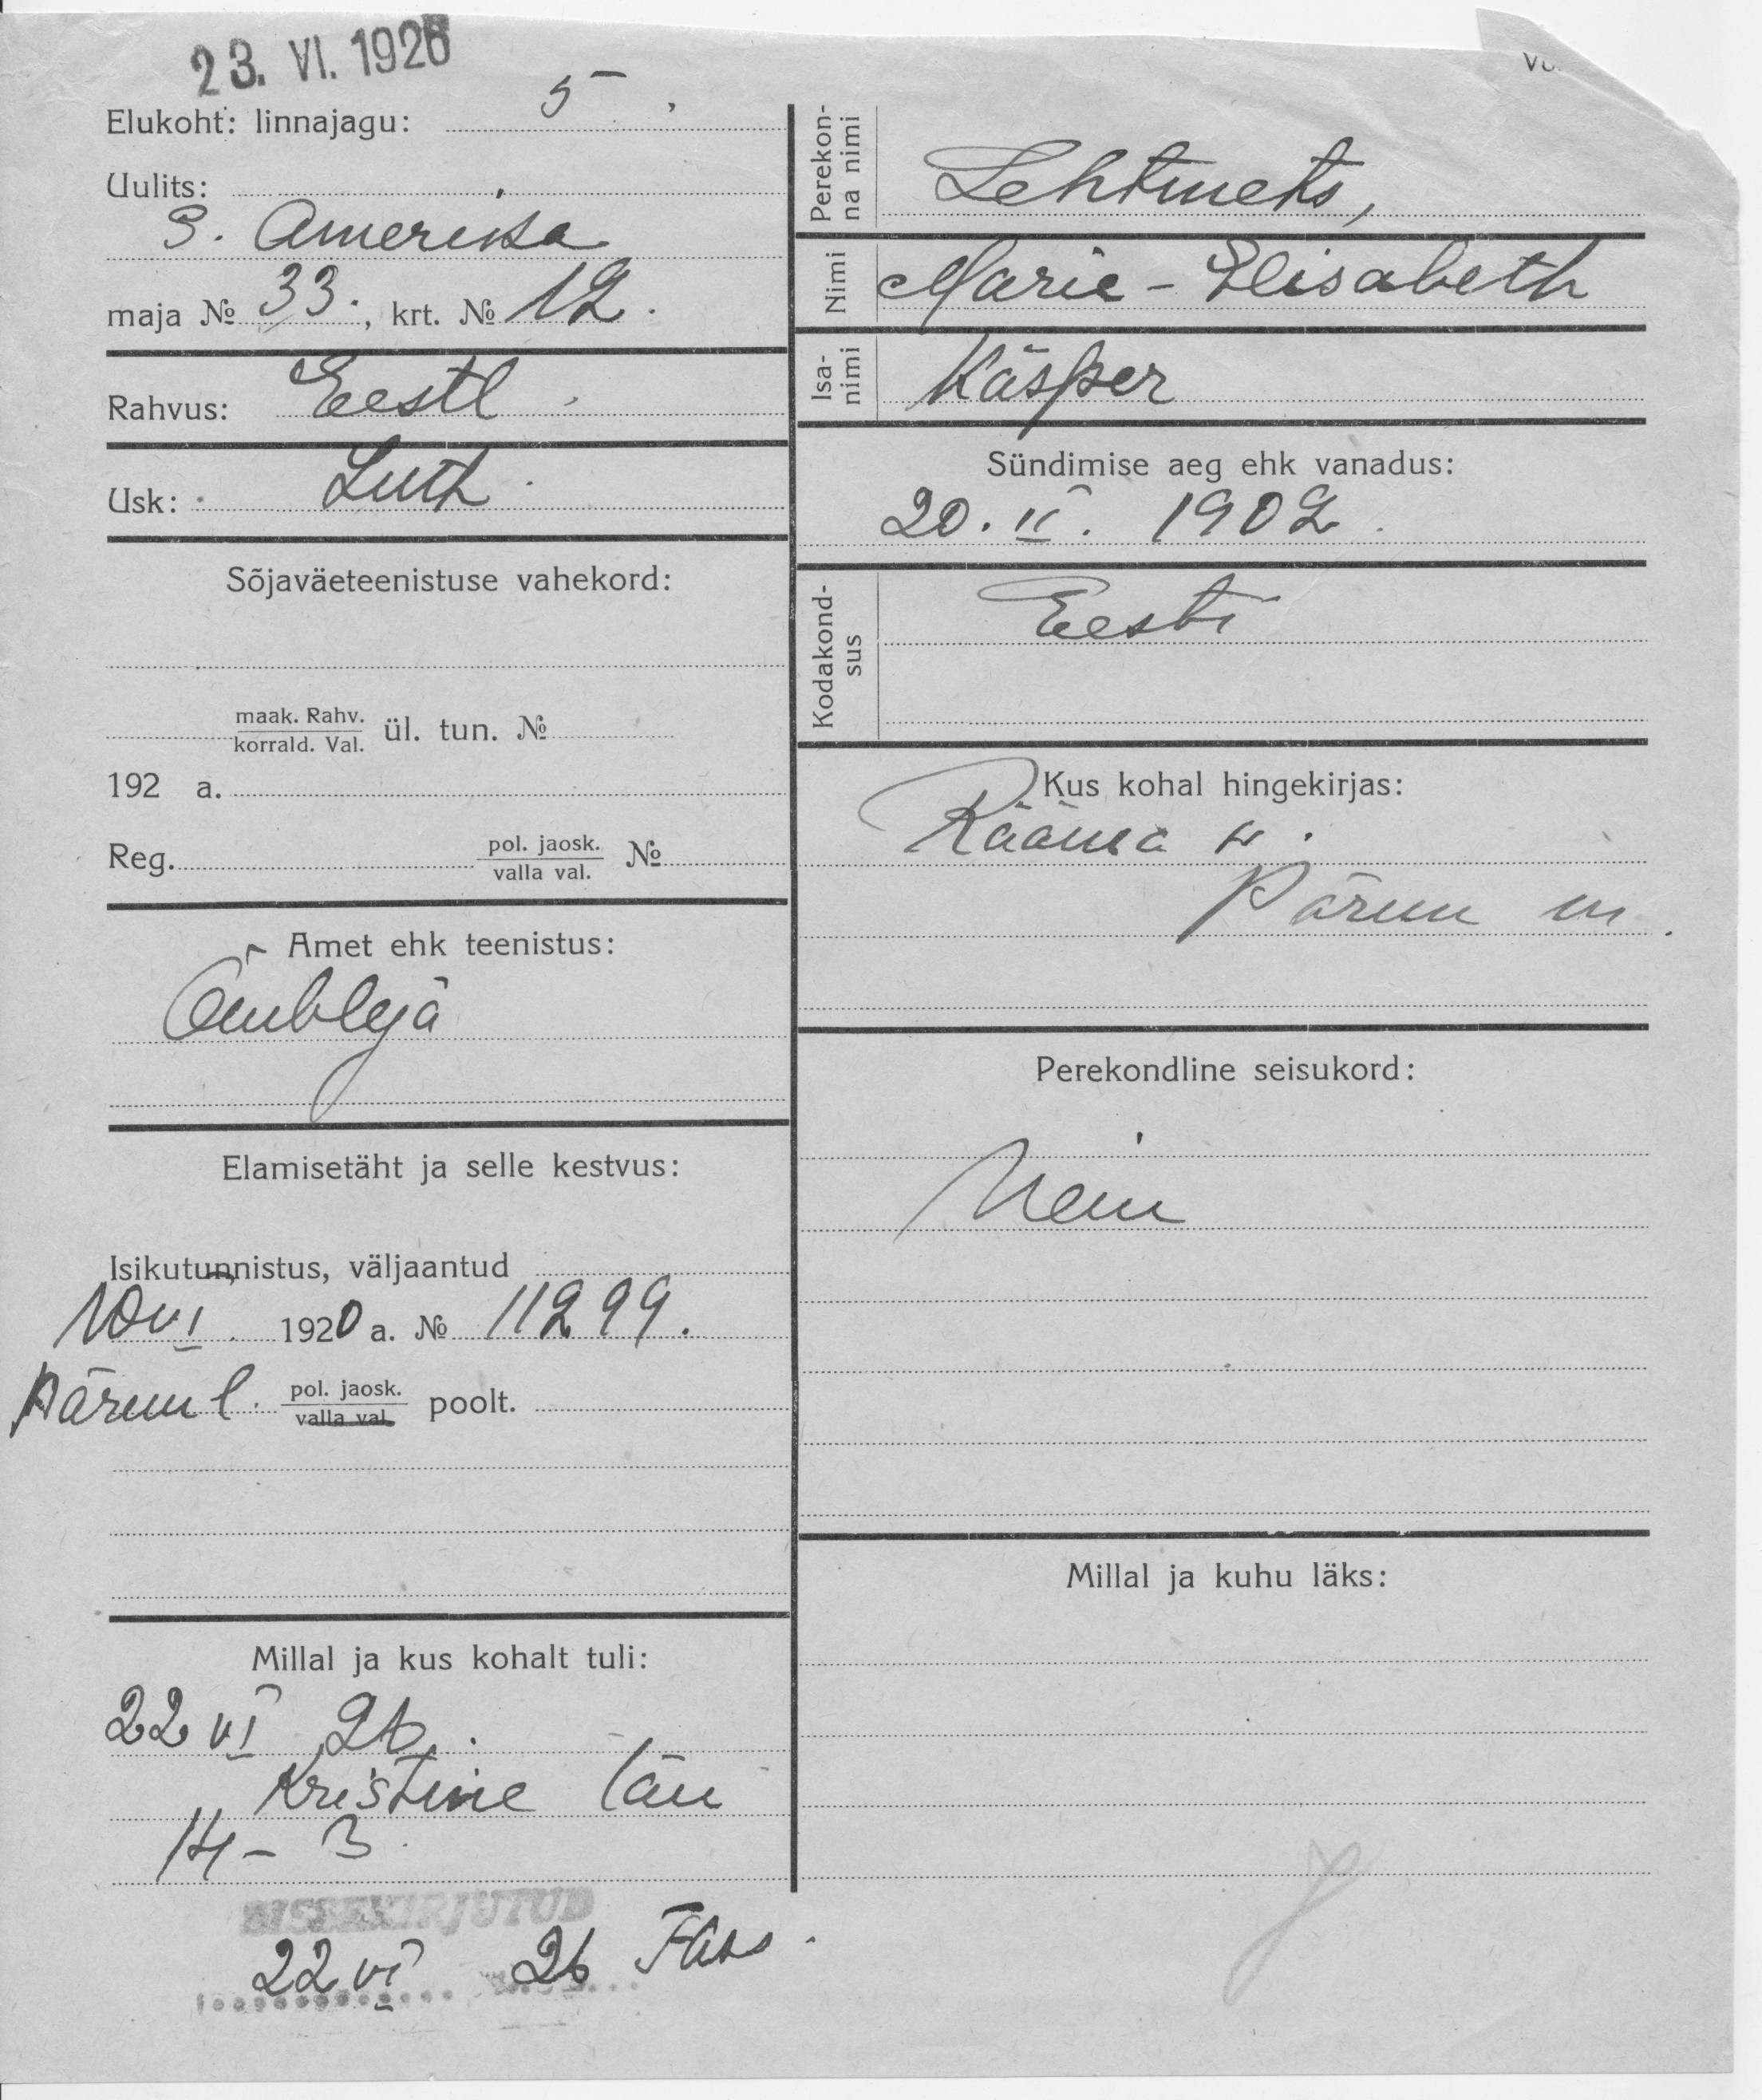 23. VI. 1926
Elukoht: linnajagu: 5
Uulits:
S. Amerika
maja № 33., krt. № 12.
Rahvus: Eestl
Usk: Luth
Sõjaväeteenistuse vahekord:
maak. Rahv.
korrald. Val. ül. tun. №
192 a.
Reg. pol. jaosk.
valla val. №
Amet ehk teenistus:
Õmbleja
Elamisetäht ja selle kestvus:
Isikutunnistus, väljaantud
10 VI 1920 a. № 11299.
Pärnu l. pol. jaosk.
valla val. poolt.
Millal ja kus kohalt tuli:
22 VI 26.
Kristine tän
14 - 3
SISSEKIRJUTUD
22 VI 26
Perekonna nimi Lehtmets,
Nimi Marie - Elisabeth
Isanimi Käsper
Sündimise aeg ehk vanadus:
20. II. 1902.
Kodakondsus Eesti
Kus kohal hingekirjas:
Rääma w.
Pärnu m.
Perekondline seisukord:
Millal ja kuhu läks: